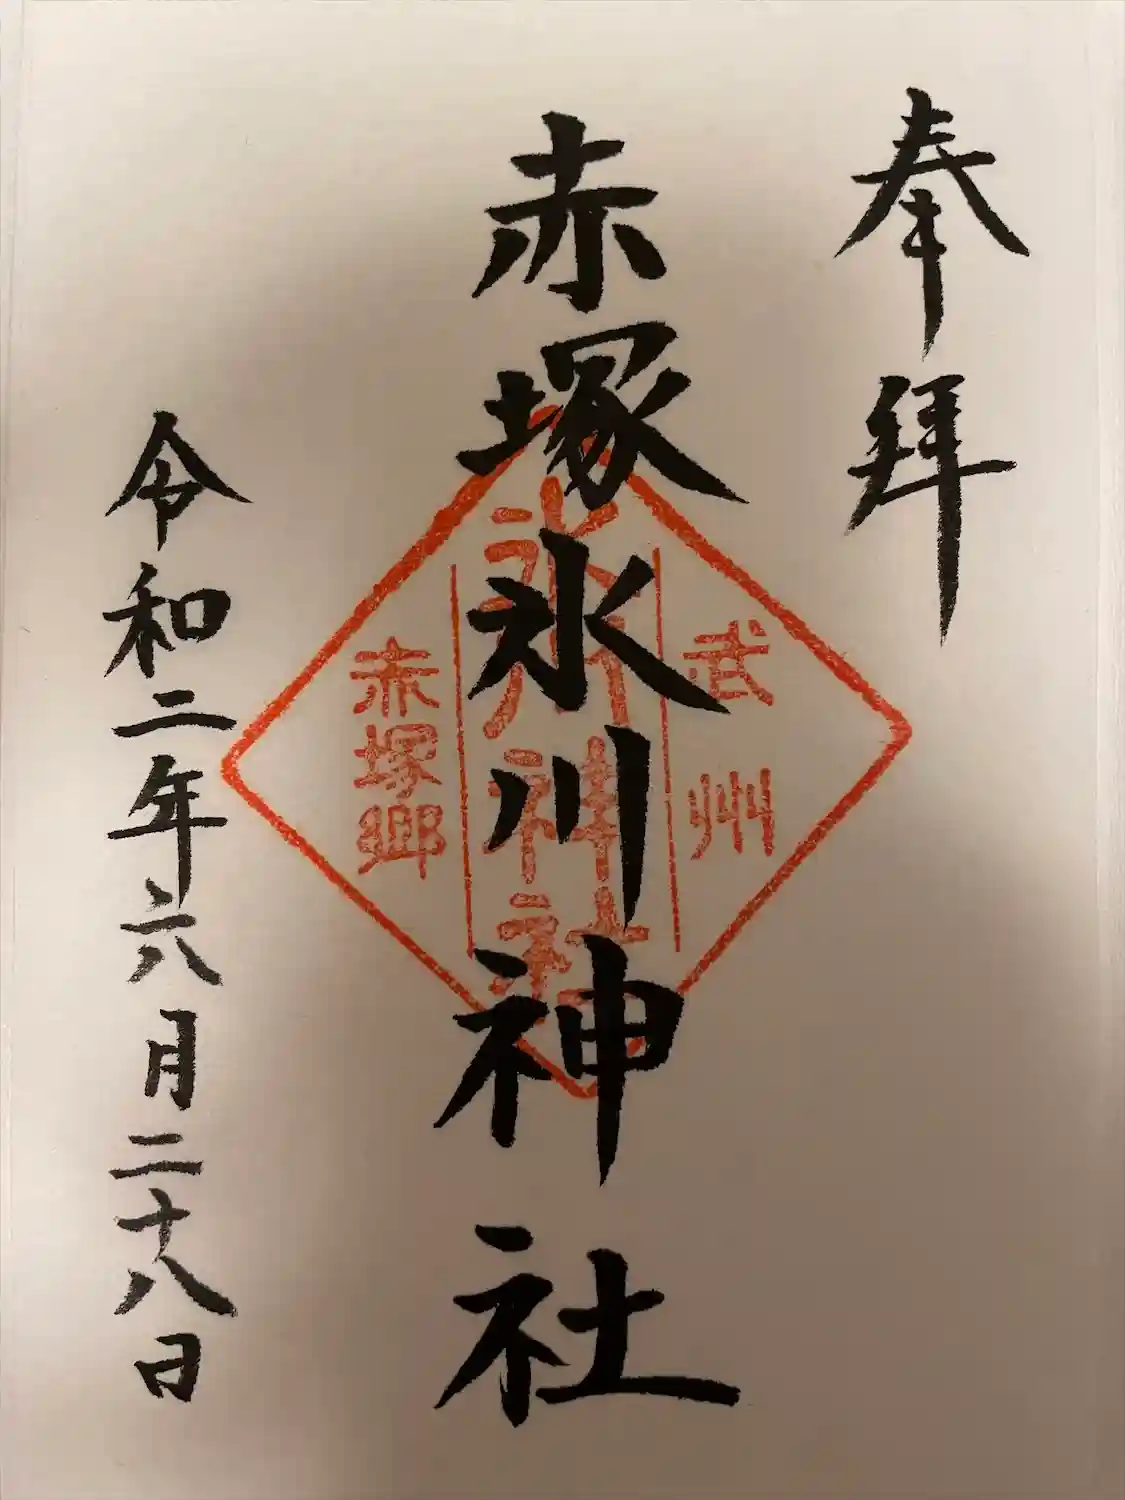 奉拝
武州
赤塚氷川神社
氷川神社
赤塚郷
令和二年六月二十八日